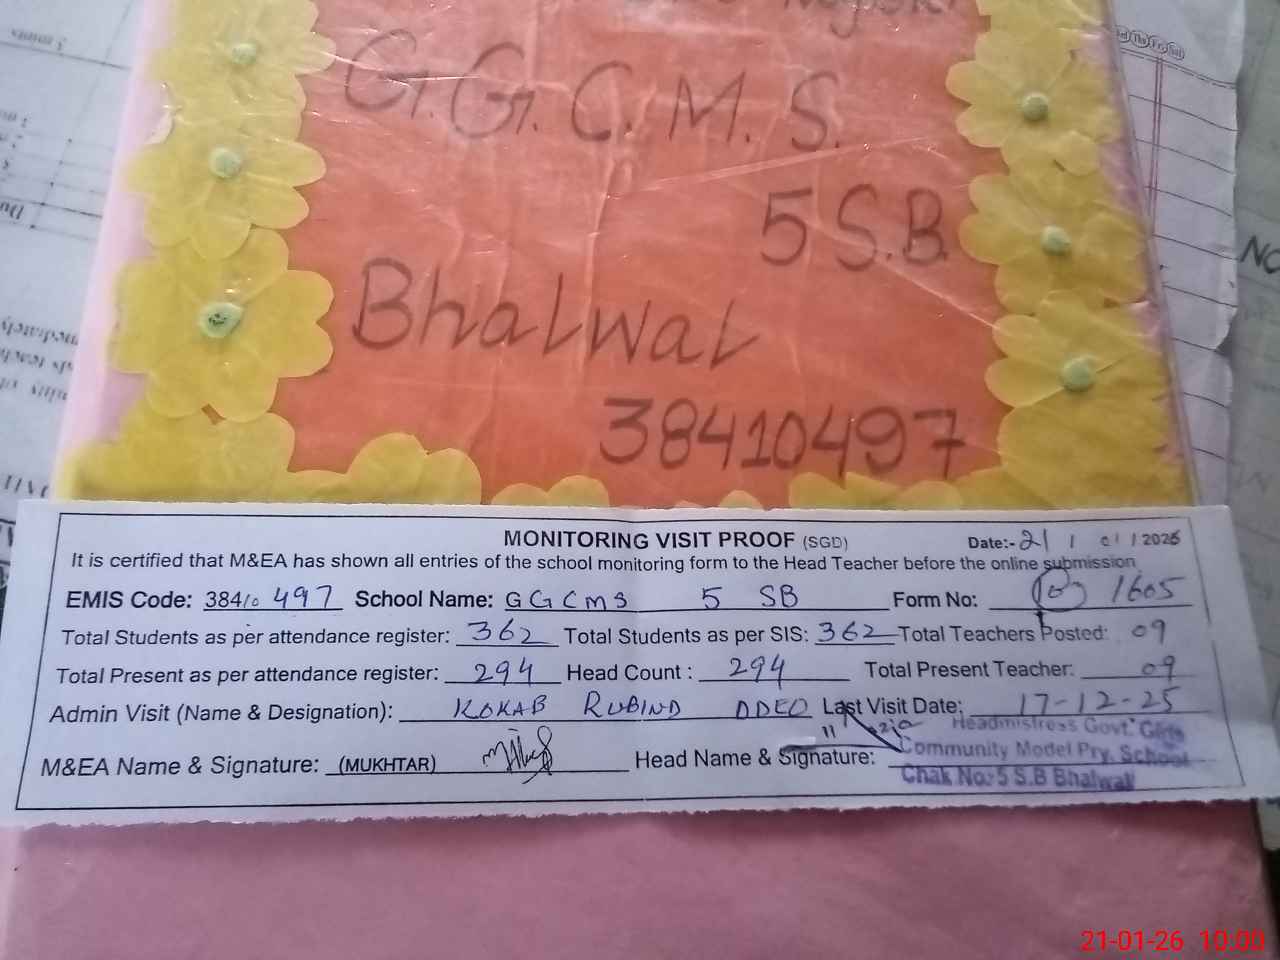 G.G.C.M.S.
5 S.B.
Bhalwal
38410497
MONITORING VISIT PROOF (SGD) Date:- 21 / 01 / 2026
It is certified that M&EA has shown all entries of the school monitoring form to the Head Teacher before the online submission
EMIS Code: 38410497 School Name: GGCMS 5 SB Form No: 1605
Total Students as per attendance register: 362 Total Students as per SIS: 362 Total Teachers Posted: 09
Total Present as per attendance register: 294 Head Count : 294 Total Present Teacher: 09
Admin Visit (Name & Designation): KOKAB RUBIND DDEO Last Visit Date: 17-12-25
M&EA Name & Signature: (MUKHTAR) Head Name & Signature:
Headmistress Govt. Girls
Community Model Pry. School
Chak No:-5 S.B Bhalwal
21-01-26 10:00